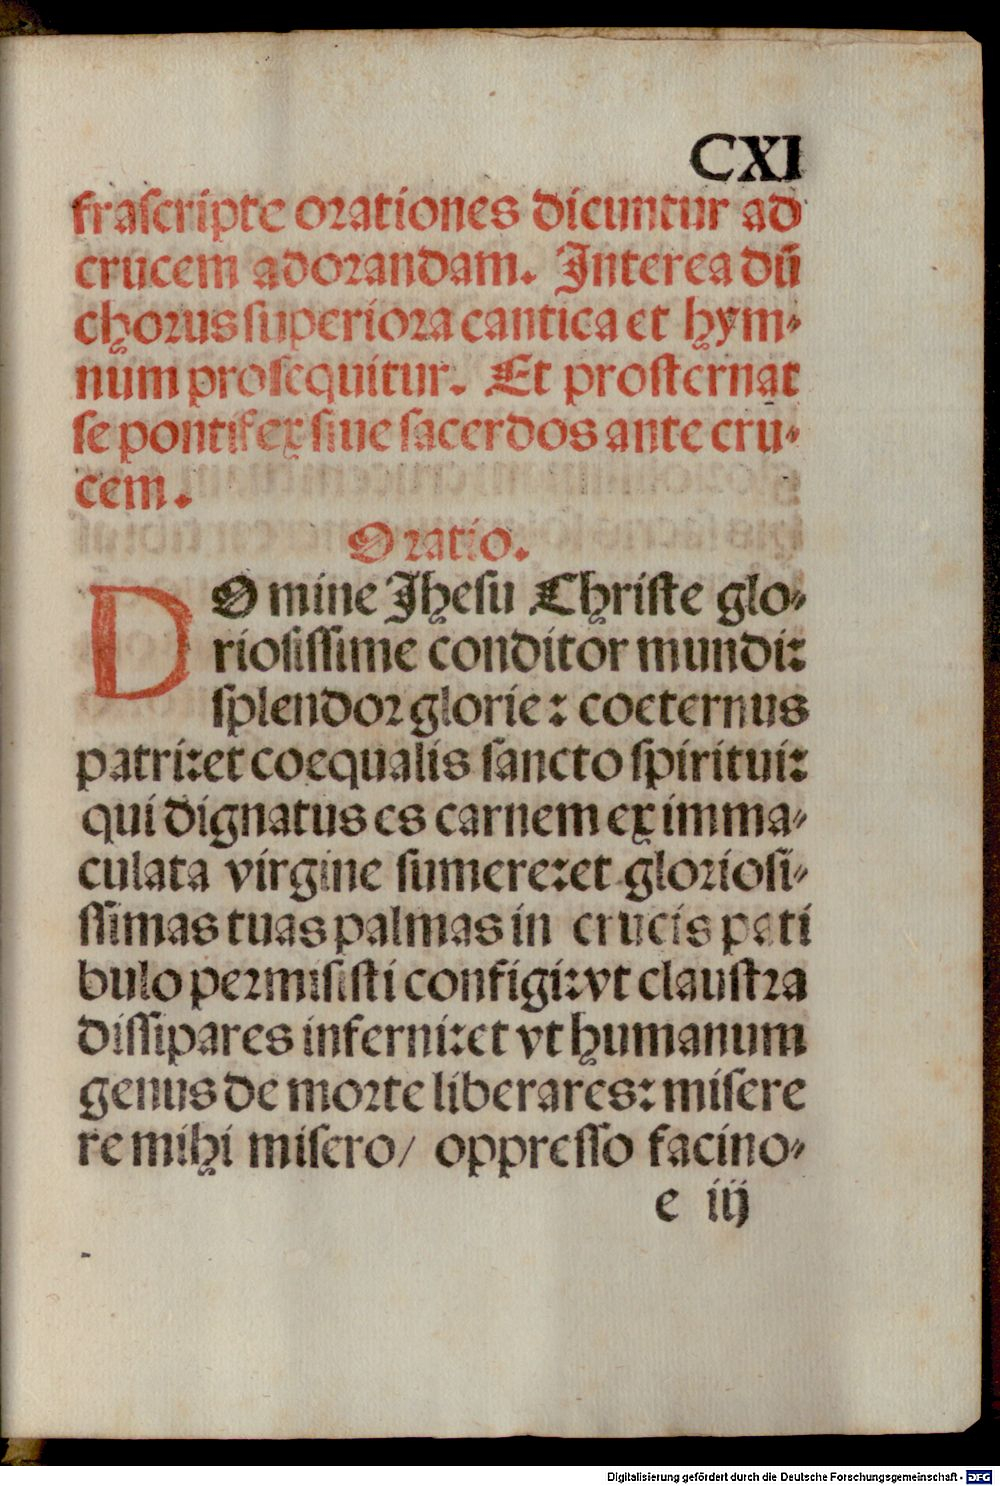 CXI
fraſcripte orationes dicuntur ad
crucem adorandam. Interea dū
chorus ſuperiora cantica et hym⸗
num proſequitur. Et proſternat
ſe pontifex ſiue ſacerdos ante cru⸗
cem.
Oratio.
DOmine Jheſu Chriſte glo⸗
rioſiſſime conditor mundi:
ſplendor glorie: coeternus
patri: et coequalis ſancto ſpiritui:
qui dignatus es carnem ex imma⸗
culata virgine ſumere: et glorioſi⸗
ſſimas tuas palmas in crucis pati
bulo permiſiſti configi: vt clauſtra
diſſipares inferni: et vt humanum
genus de morte liberares: miſere
re mihi miſero/ oppreſſo facino⸗
e iij
Digitalisierung gefördert durch die Deutsche Forschungsgemeinschaft - DFG